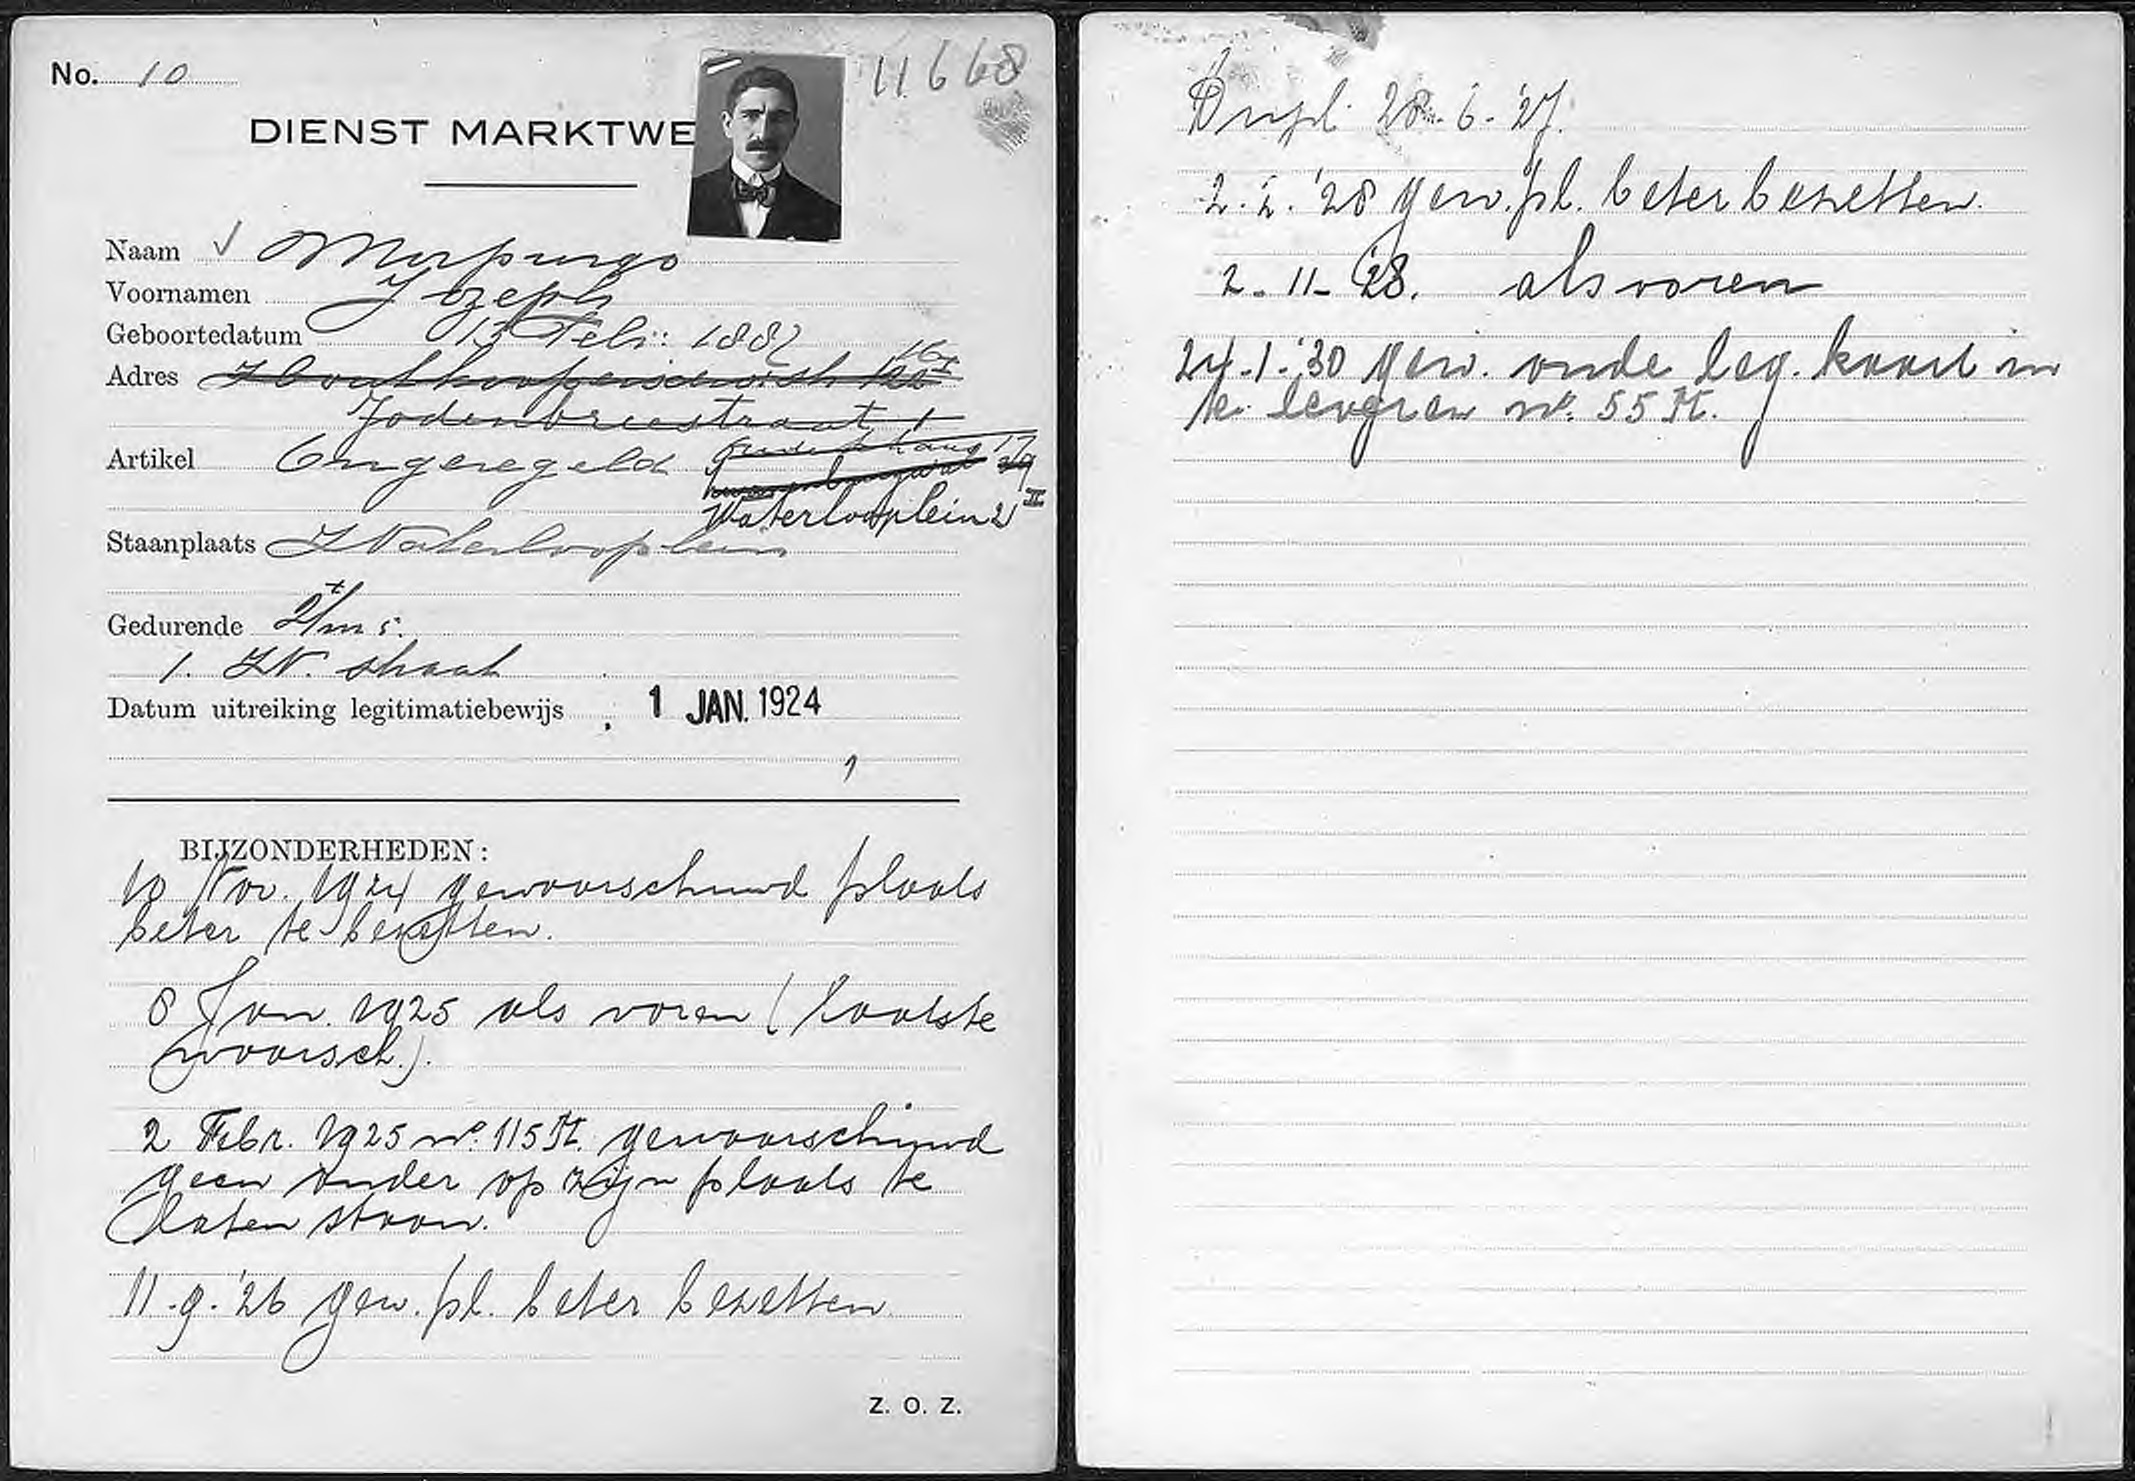 No. 10
11668
DIENST MARKTWE
Naam √ Morpurgo
Voornamen Jozeph
Geboortedatum 13 Feb: 1882
Adres Houtkoopersdwarsstr
Jodenbreestraat 1
Artikel Ongeregeld
Waterlooplein 2 II
Staanplaats Waterlooplein
Gedurende 2 t/m 5.
1. W. straat
Datum uitreiking legitimatiebewijs 1 JAN. 1924
BIJZONDERHEDEN:
10 Nov. 1924 gewaarschuwd plaats
beter te bezetten.
8 Jan. 1925 als voren (laatste
waarsch.).
2 Febr. 1925 no. 115 M. gewaarschuwd
geen ander op zijn plaats te
laten staan.
11.9.'26 gew. pl. beter bezetten
Z. O. Z.
Dupl. 28.-6.-'27.
2.2.'28 gew. pl. beter bezetten.
2.-11-'28. als voren
24.-1-'30 gew. oude leg. kaart in
te leveren no. 55 M.